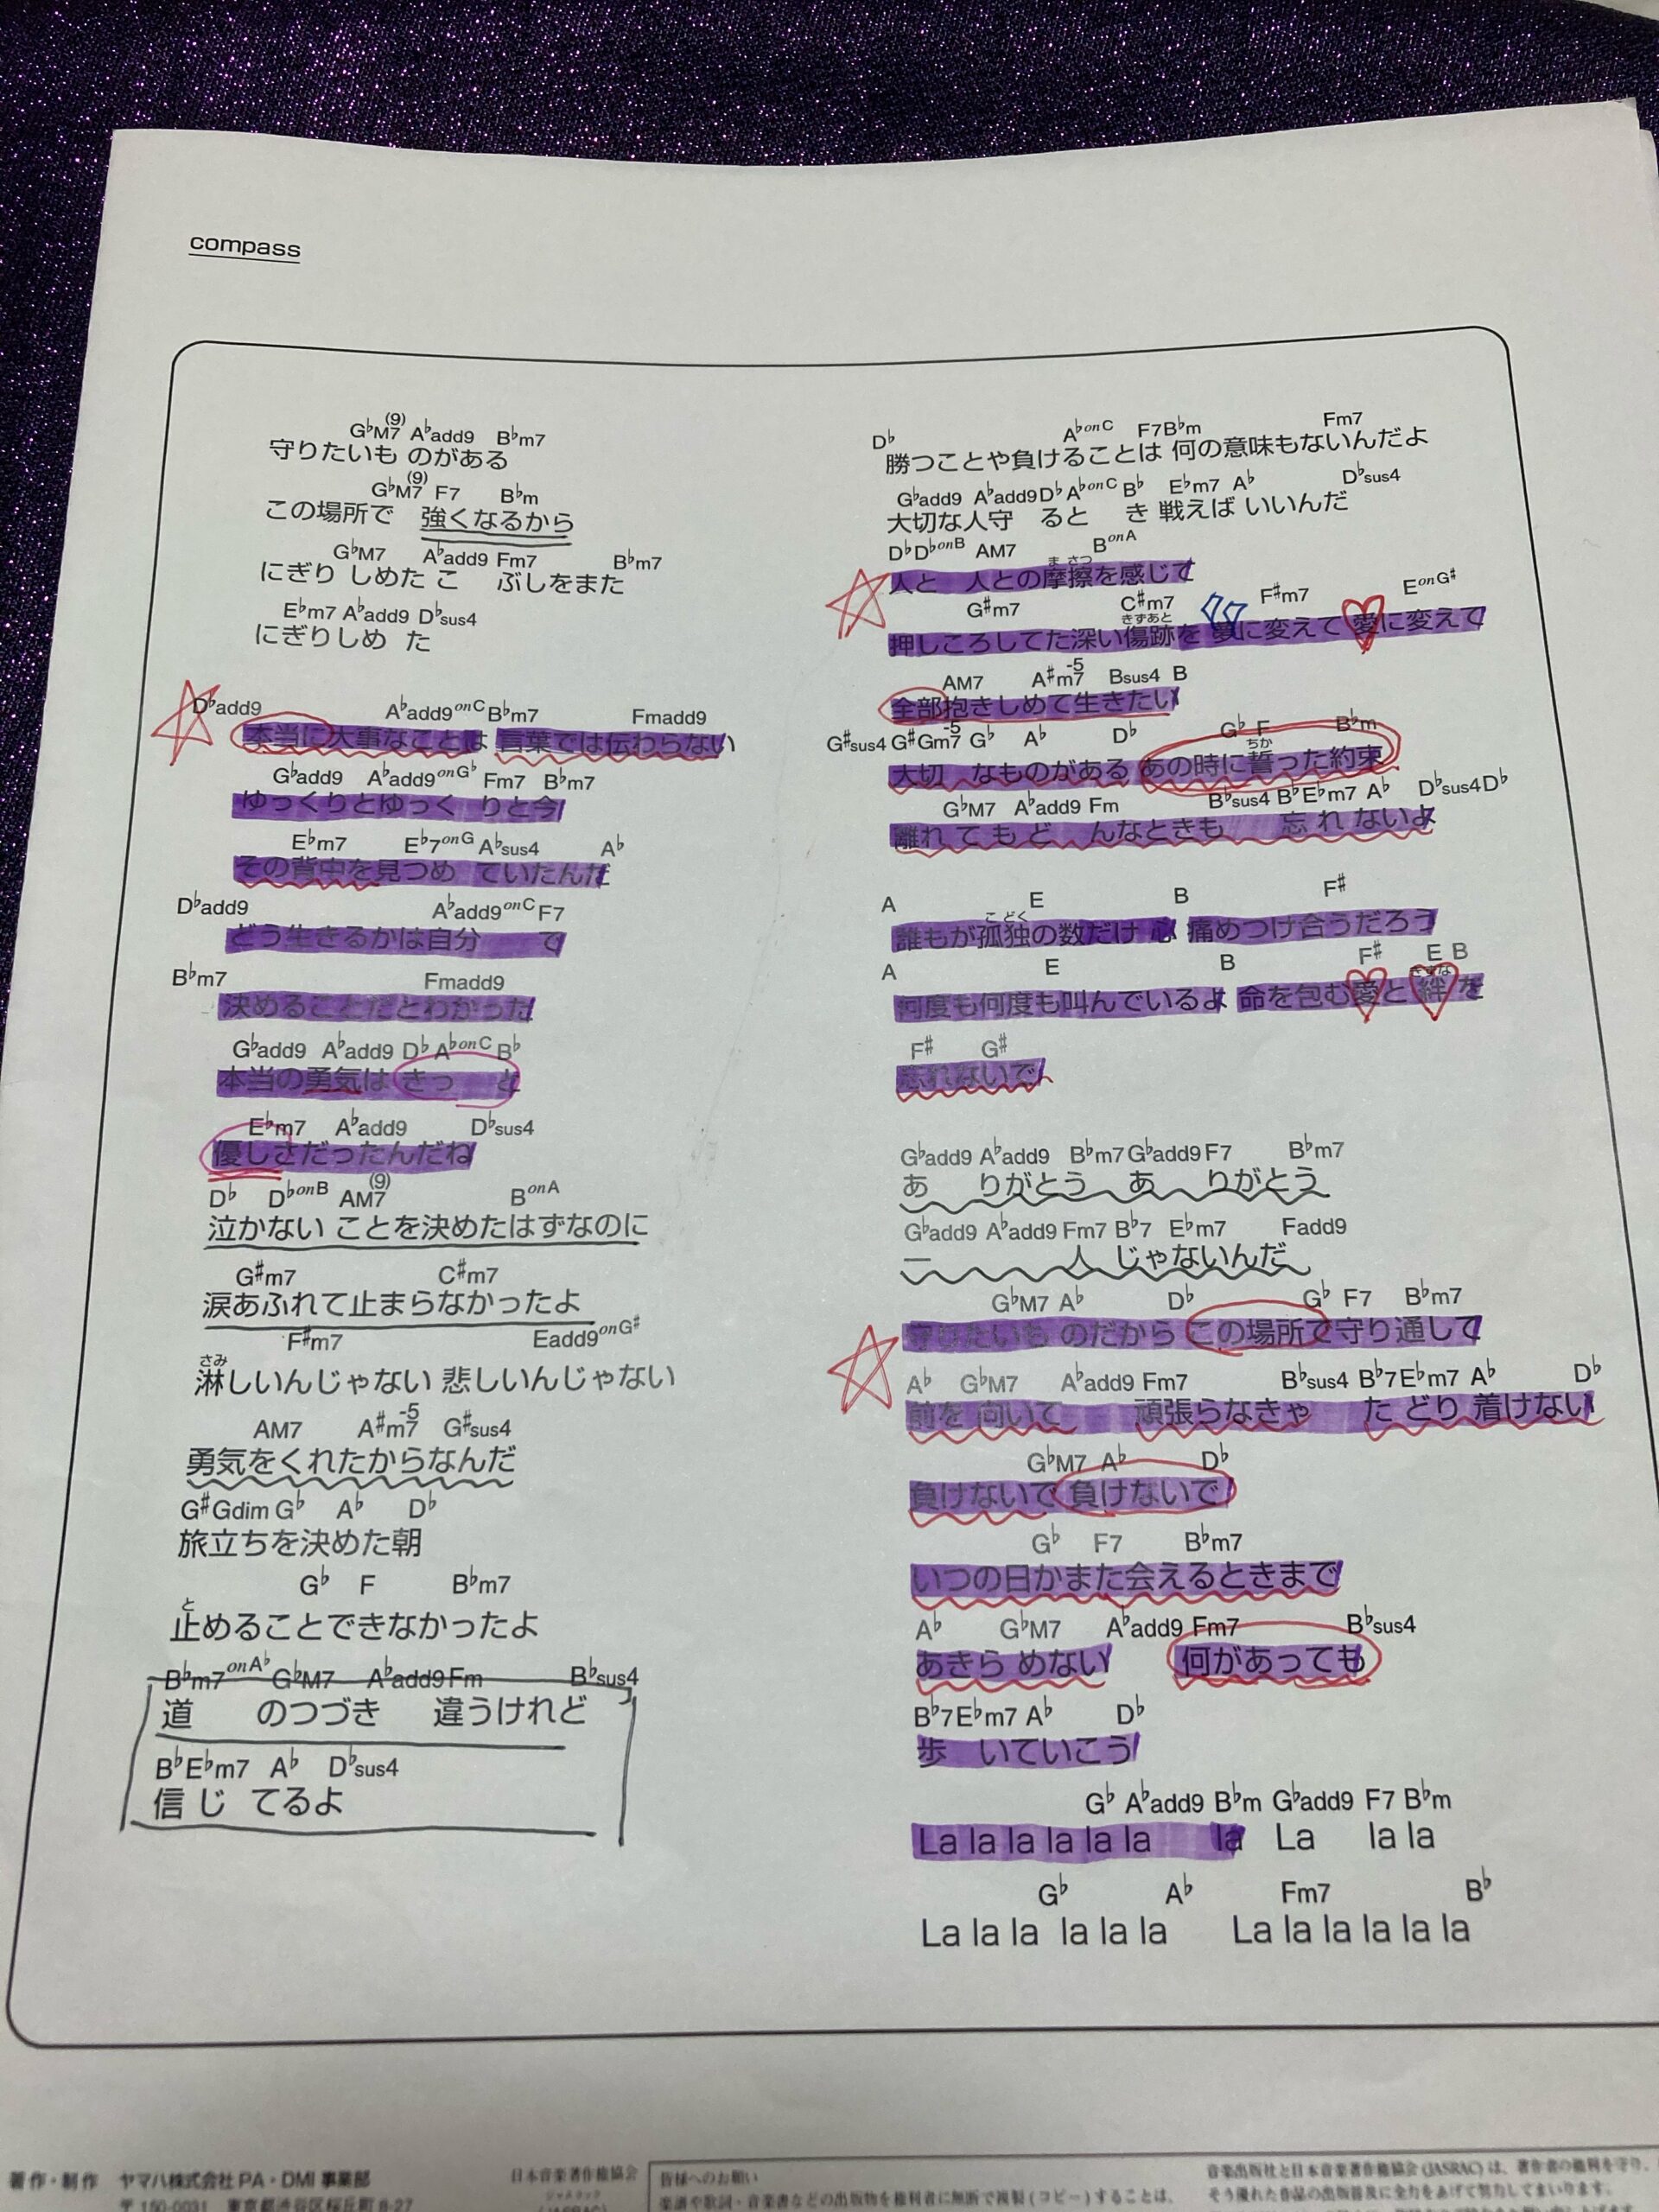 compass
G♭M7(9) A♭add9 B♭m7
守りたいも のがある
G♭M7(9) F7 B♭m
この場所で 強くなるから
G♭M7 A♭add9 Fm7 B♭m7
にぎり しめた こ ぶしをまた
E♭m7 A♭add9 D♭sus4
にぎりしめ た
D♭add9 A♭add9onC B♭m7 Fmadd9
本当に大事なことは 言葉では伝わらない
G♭add9 A♭add9onG♭ Fm7 B♭m7
ゆっくりとゆっく りと今
E♭m7 E♭7onG A♭sus4 A♭
その背中を見つめ ていたんだ
D♭add9 A♭add9onC F7
どう生きるかは自分 で
B♭m7 Fmadd9
決めることだとわかった
G♭add9 A♭add9 D♭ A♭onC B♭
本当の勇気は きっ と
E♭m7 A♭add9 D♭sus4
優しさだったんだね
D♭ D♭onB AM7(9) BonA
泣かない ことを決めたはずなのに
G#m7 C#m7
涙あふれて止まらなかったよ
F#m7 Eadd9onG#
さみ
淋しいんじゃない 悲しいんじゃない
AM7 A#m7-5 G#sus4
勇気をくれたからなんだ
G# Gdim G♭ A♭ D♭
旅立ちを決めた朝
G♭ F B♭m7
と
止めることできなかったよ
B♭m7onA♭ G♭M7 A♭add9 Fm B♭sus4
道 のつづき 違うけれど
B♭ E♭m7 A♭ D♭sus4
信 じ てるよ
D♭ A♭onC F7 B♭m Fm7
勝つことや負けることは 何の意味もないんだよ
G♭add9 A♭add9 D♭ A♭onC B♭ E♭m7 A♭ D♭sus4
大切な人守 ると き 戦えば いいんだ
D♭ D♭onB AM7 BonA
まさつ
人と 人との摩擦を感じて
G#m7 C#m7 F#m7 EonG#
きずあと
押しころしてた深い傷跡を 夢に変えて 愛に変えて
AM7 A#m7-5 Bsus4 B
全部抱きしめて生きたい
G#sus4 G# Gm7-5 G♭ A♭ D♭ G♭ F B♭m
ちか
大切 なものがある あの時に誓った約束
G♭M7 A♭add9 Fm B♭sus4 B♭ E♭m7 A♭ D♭sus4 D♭
離れ て も ど んなときも 忘 れ ないよ
A E B F#
こどく
誰もが孤独の数だけ 心 痛めつけ合うだろう
A E B F# E B
きずな
何度も何度も叫んでいるよ 命を包む愛と 絆を
F# G#
忘れないで
G♭add9 A♭add9 B♭m7 G♭add9 F7 B♭m7
あ りがとう あ りがとう
G♭add9 A♭add9 Fm7 B♭7 E♭m7 Fadd9
一 人 じゃないんだ
G♭M7 A♭ D♭ G♭ F7 B♭m7
守りたいも のだから この場所で守り通して
A♭ G♭M7 A♭add9 Fm7 B♭sus4 B♭7 E♭m7 A♭ D♭
前を 向いて 頑張らなきゃ た どり 着けない
G♭M7 A♭ D♭
負けないで 負けないで
G♭ F7 B♭m7
いつの日かまた会えるときまで
A♭ G♭M7 A♭add9 Fm7 B♭sus4
あきら めない 何があっても
B♭7 E♭m7 A♭ D♭
歩 いていこう
G♭ A♭add9 B♭m G♭add9 F7 B♭m
La la la la la la la La la la
G♭ A♭ Fm7 B♭
La la la la la la La la la la la la
著作・制作 ヤマハ株式会社 PA・DMI 事業部
〒150-0031 東京都渋谷区桜丘町 8-27
日本音楽著作権協会
ジャスラック
(JASRAC)
皆様へのお願い
楽譜や歌詞・音楽書などの出版物を権利者に無断で複製(コピー)することは、
音楽出版社と日本音楽著作権協会 (JASRAC) は、著作者の権利を守り、
そう優れた作品の出版普及に全力をあげて努力してまいります。